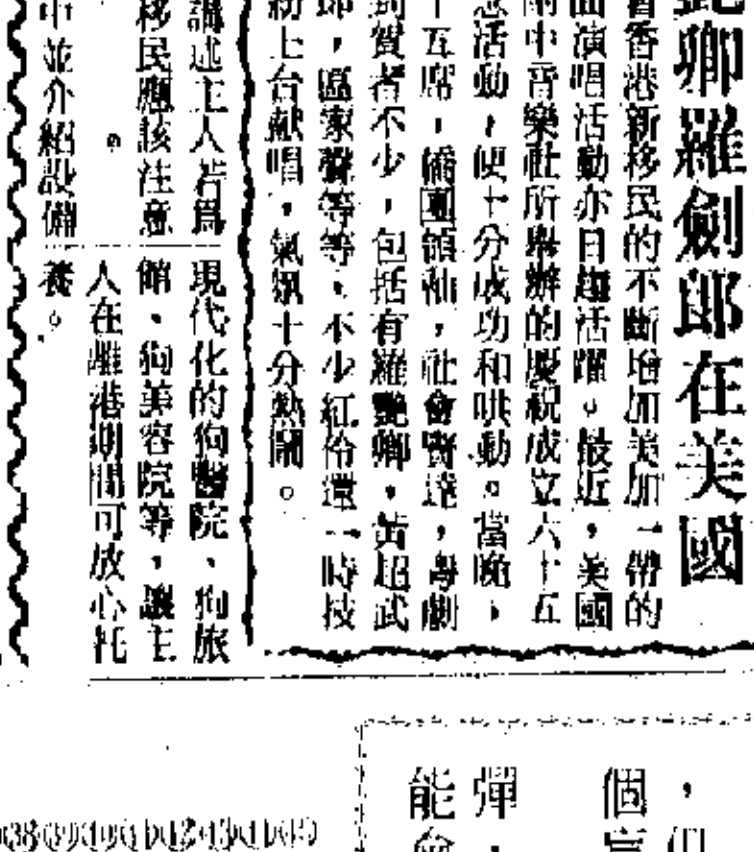 卿羅劍郎在美國
香港新移民的不斷增加美加一帶的
曲演唱活動亦日趨活躍。最近，美國
中音樂社所舉辦的慶祝成立六十五
活動，便十分成功和哄動。當晚，
十五席，僑團領袖，社會賢達，粵劇
到賀者不少，包括有羅艷卿，黃超武
郎，區家聲等等，不少紅伶還一時技
紛上台献唱，氣氛十分熱鬧。
講述主人若爲
移民應該注意
。
中並介紹設備
現代化的狗醫院、狗旅
館、狗美容院等，讓主
人在離港期間可放心托
養。
，但
個
彈，
能會